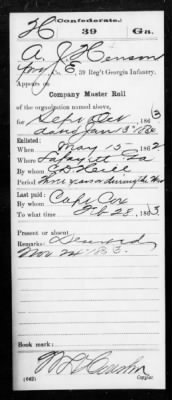 H Confederate. 39 Ga.
A. J. Henson
Co. E, 39 Reg't Georgia Infantry.
Appears on
Company Muster Roll
of the organization named above,
for Sept Dec 1863
Enlisted:
When May 15, 1862
Where Lafayett Ga
By
Period three years or during the War
Last paid:
By Capt Cox
To what time Feb 28, 1863
Present or absent
Remarks: Deserted
Nov 24 1863.
Book mark:
(642) Copyist.